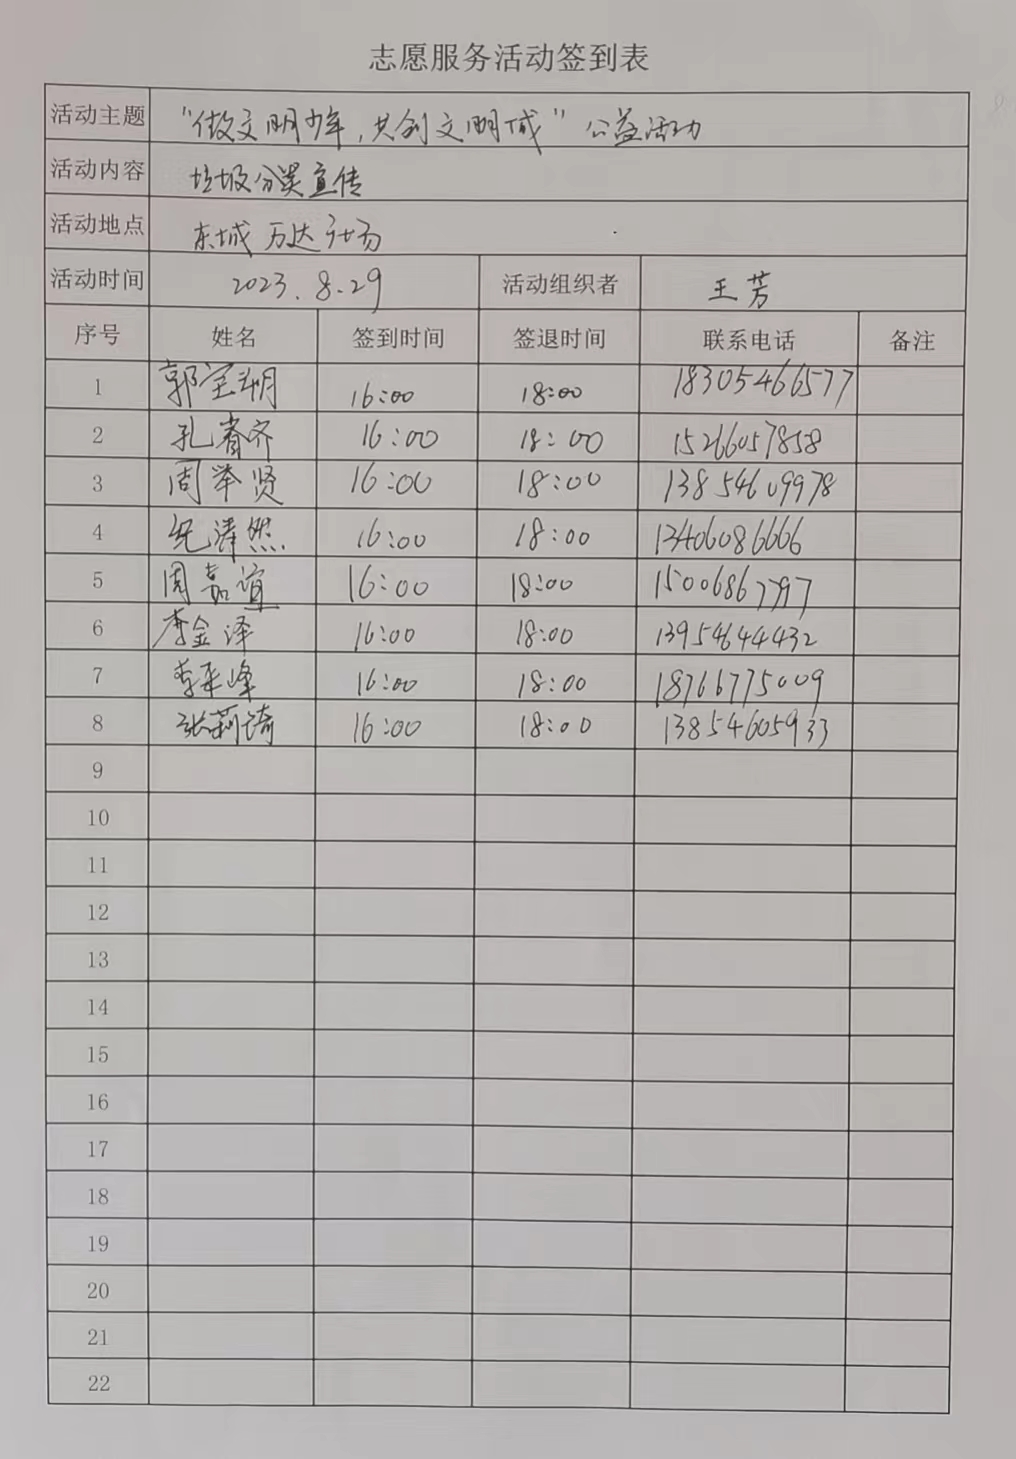 志愿服务活动签到表
活动主题 “做文明少年，共创文明城”公益活动
活动内容 垃圾分类宣传
活动地点 东城万达广场
活动时间 2023.8.29 活动组织者 王芳
序号 姓名 签到时间 签退时间 联系电话 备注
1 郭宝翔 16:00 18:00 18305466577
2 孔睿齐 16:00 18:00 15266057858
3 周举贤 16:00 18:00 13854609978
4 纪清然 16:00 18:00 13406086666
5 周嘉谊 16:00 18:00 15006867797
6 李金泽 16:00 18:00 13954644432
7 李来峰 16:00 18:00 18766775009
8 张莉琦 16:00 18:00 13854605933
9
10
11
12
13
14
15
16
17
18
19
20
21
22